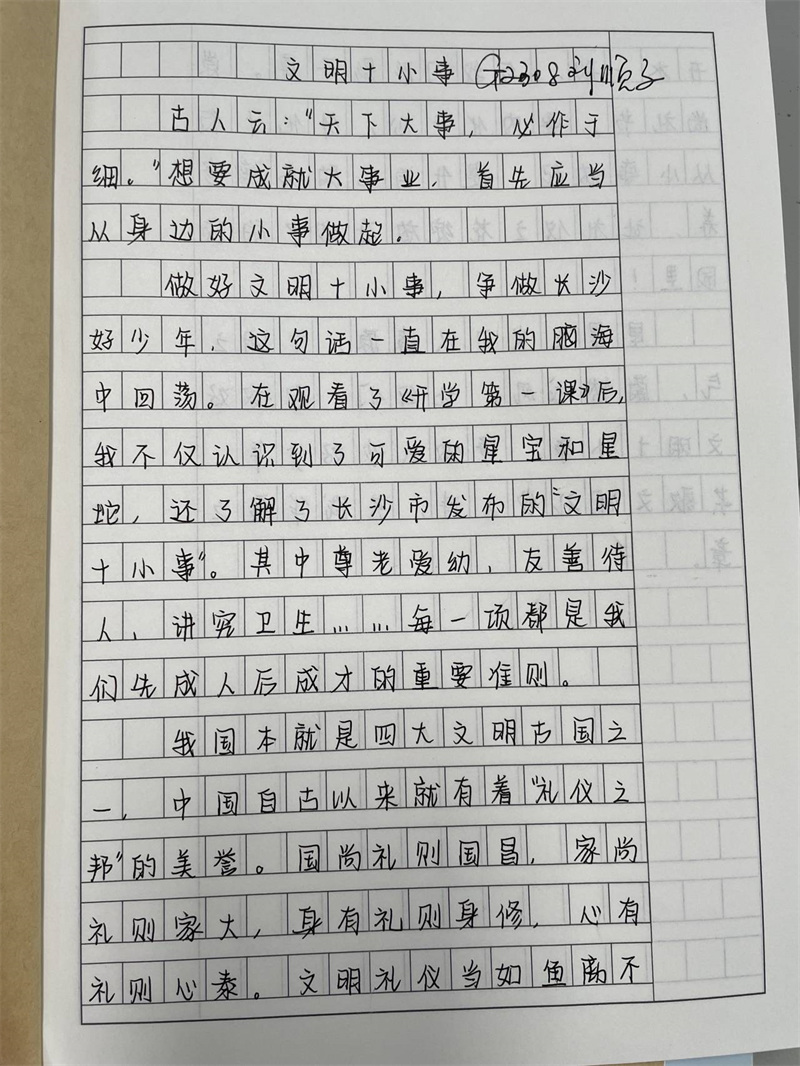 文明十小事 G2308刘顺子
古人云:“天下大事,必作于
细。”想要成就大事业,首先应当
从身边的小事做起.
做好文明十小事,争做长沙
好少年,这句话一直在我的脑海
中回荡。在观看了《开学第一课》后,
我不仅认识到了可爱的星宝和星
蛇,还了解了长沙市发布的“文明
十小事”。其中尊老爱幼,友善待
人,讲究卫生……每一项都是我
们先成人后成才的重要准则。
我国本就是四大文明古国之
一,中国自古以来就有着“礼仪之
邦”的美誉。国尚礼则国昌,家尚
礼则家大,身有礼则身修,心有
礼则心泰。文明礼仪当如鱼离不